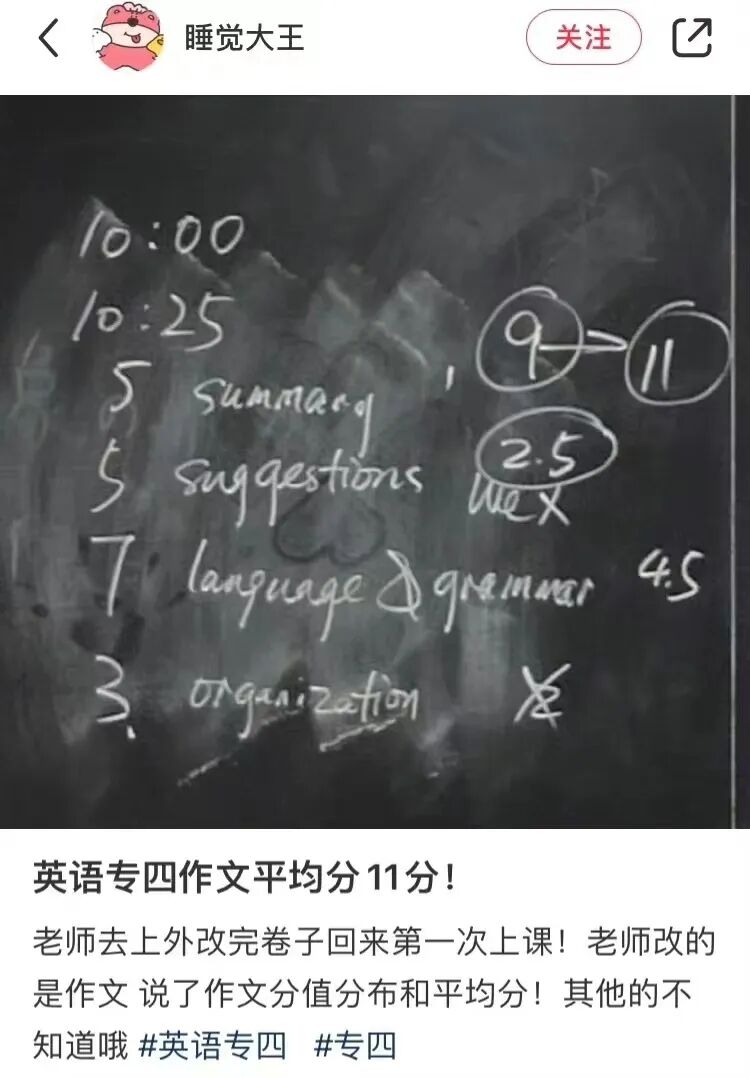 睡觉大王
关注
10:00
10:25
9 → 11
5 summary
2.5
5 suggestions we X
7 language & grammar 4.5
3 organization
英语专四作文平均分11分！
老师去上外改完卷子回来第一次上课！老师改的
是作文 说了作文分值分布和平均分！其他的不
知道哦 #英语专四 #专四